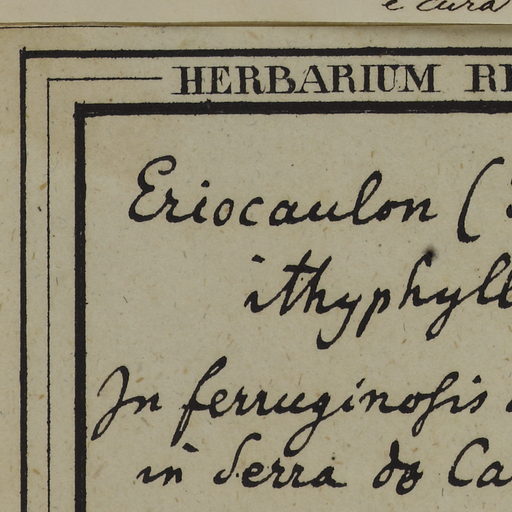 e cura
HERBARIUM RE
Eriocaulon (
ithyphyll
In ferruginosis
in Serra do Ca